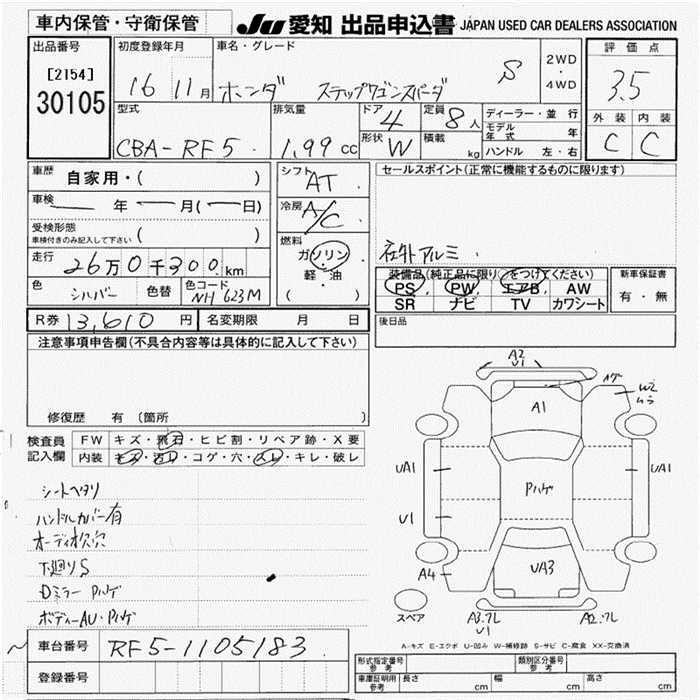 車内保管・守衛保管 JU 愛知 出品申込書 JAPAN USED CAR DEALERS ASSOCIATION
出品番号 初度登録年月 車名・グレード 評価点
[2154] 16 11月 ホンダ ステップワゴンスパーダ S 2WD・4WD 3.5
30105
型式 排気量 ドア 4 定員 8人 ディーラー・並行 外装 内装
CBA-RF5 1.99cc 形状 W 積載 kg モデル年式 年 C C
ハンドル 左・右
車歴 自家用・( ) シフト AT セールスポイント(正常に機能するものに限ります)
車検 年 月( 日) 冷房 A/C
受検形態
車検付きのみ記入して下さい ( ) 燃料 社外アルミ
走行 26万0千300km ガソリン 装備品(純正品に限り○をつけてください) 新車保証書
・軽・油 PS PW エアB AW 有・無
色 シルバー 色替 色コード NH623M ( ) SR ナビ TV カワシート
R券 13,610円 名変期限 月 日 後日品
注意事項申告欄(不具合内容等は具体的に記入して下さい)
修復歴 有(箇所
検査員記入欄 FW キズ・飛石・ヒビ割・リペア跡・X要
内装 キズ・汚レ・コゲ・穴・スレ・キレ・破レ
シートヘタリ
ハンドルカバー有
オーディオ欠穴
下廻りS
Dミラー Pハゲ
ボディーAU・Pハゲ
A2
U1
ハゲ
W2
ムラ
A1
UA1 UA1
Pハゲ
U1
A4 UA3
スペア A3.ワレ A2.ワレ
U1
A-キズ E-エクボ U-凹み W-補修跡 S-サビ C-腐食 XX-交換済
車台番号 RF5-1105183
登録番号
型式指定番号 参考 類別区分番号 参考
車庫証明用 参考 長さ cm 幅 cm 高さ cm